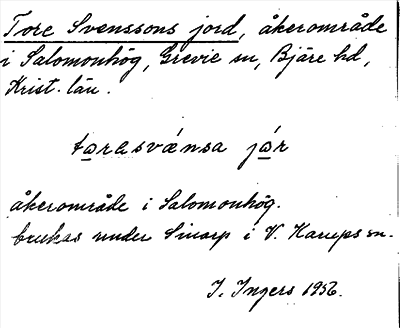 Tore Svenssons jord, åkerområde
i Salomonhög, Grevie sn, Bjäre hd,
Krist. län.
tɷrasvǽnsa jɷ́r
åkerområde i Salomonhög.
brukas under Sinarp i V. Karups sn.
I. Ingers 1956.